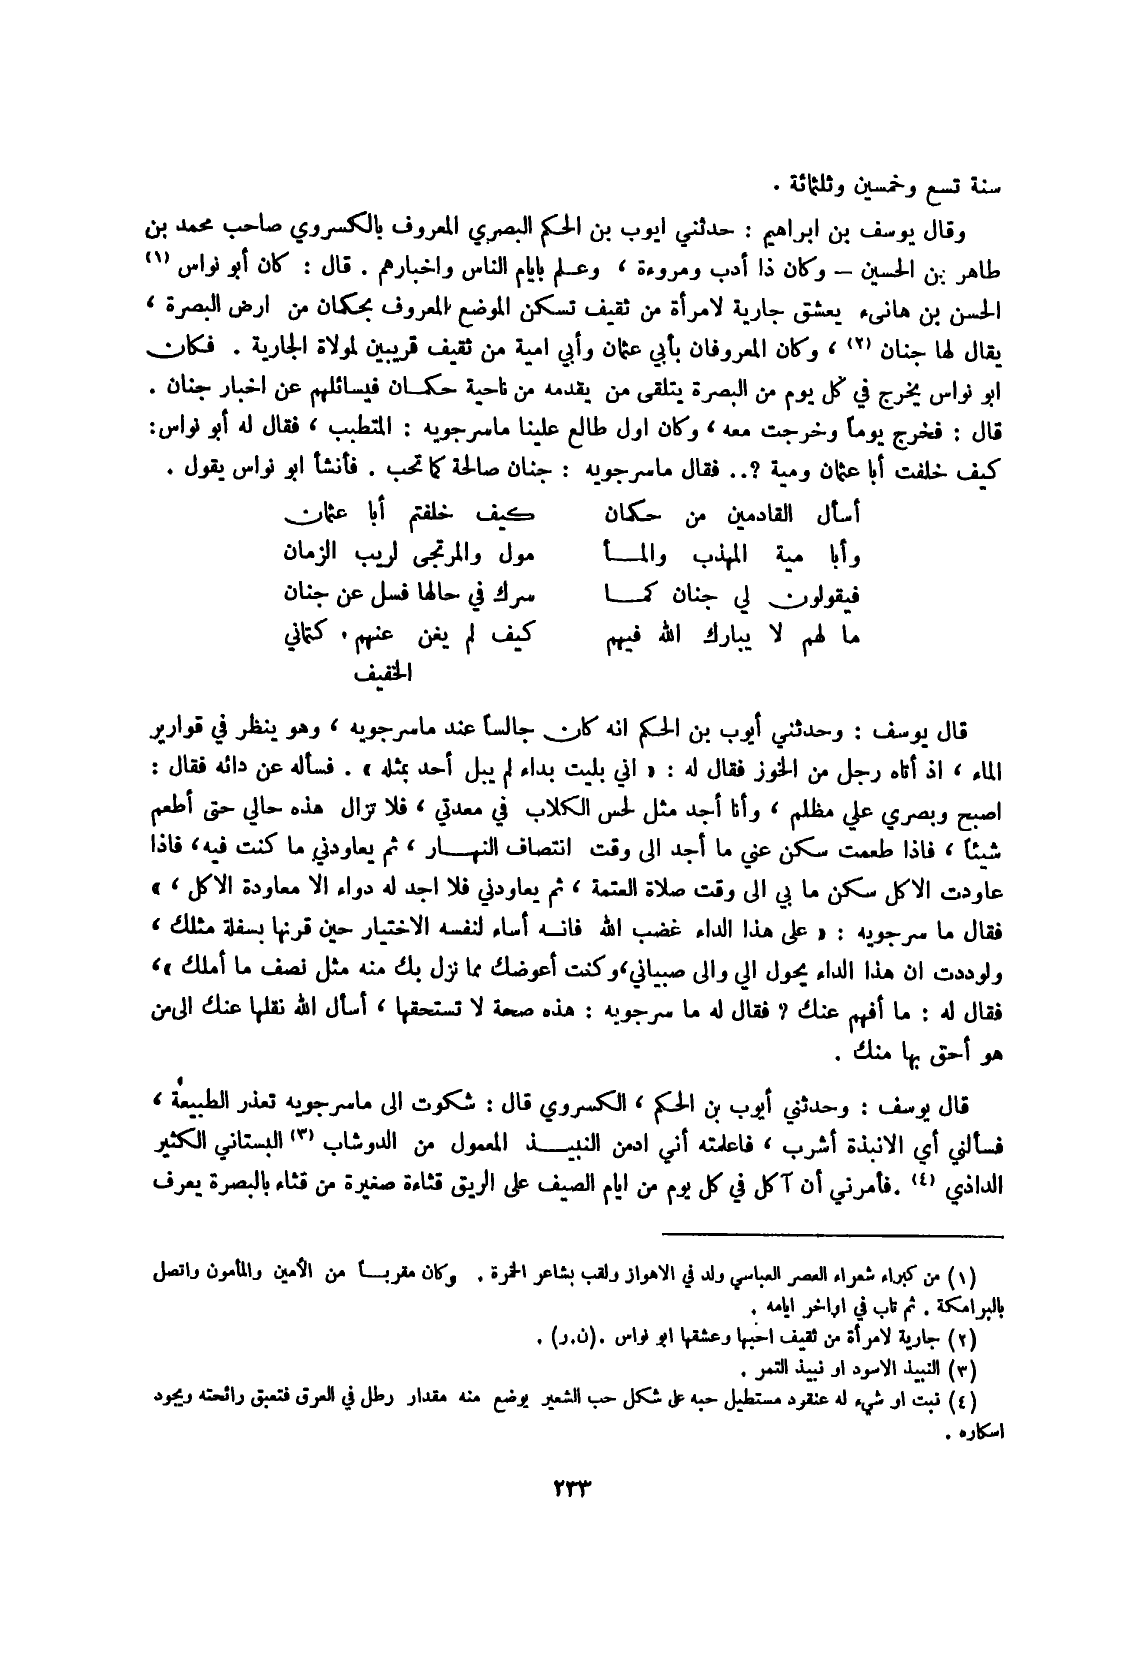 سنة تسع وخمسين وثلثمائة .
وقال يوسف بن ابراهيم : حدثني ايوب بن الحكم البصري المعروف بالكسروي صاحب محمد بن
طاهر بن الحسين – وكان ذا أدب ومروءة ، وعلم بايام الناس واخبارهم . قال : كان أبو نواس (١)
الحسن بن هانىء يعشق جارية لامرأة من ثقيف تسكن الموضع المعروف بحكمان من ارض البصرة ،
يقال لها جنان (٢) ، وكان المعروفان بأبي عثمان وأبي امية من ثقيف قريبين لمولاة الجارية . فكان
ابو نواس يخرج في كل يوم من البصرة يتلقى من يقدمه من ناحية حكمان فيسائلهم عن اخبار جنان .
قال : فخرج يوماً وخرجت معه ، وكان اول طالع علينا ماسرجويه : المتطبب ، فقال له أبو نواس:
كيف خلفت أبا عثمان ومية ?.. فقال ماسرجويه : جنان صالحة كما تحب . فأنشأ ابو نواس يقول .
أسأل القادمين من حكمان كيف خلفتم أبا عثمان
وأبا مية المهذب والمأ مول والمرتجى لريب الزمان
فيقولون لي جنان كما سرك في حالها فسل عن جنان
ما لهم لا يبارك الله فيهم كيف لم يغن عنهم . كتماني
الخفيف
قال يوسف : وحدثني أيوب بن الحكم انه كان جالساً عند ماسرجويه ، وهو ينظر في قوارير
الماء ، اذ أتاه رجل من الخوز فقال له : « اني بليت بداء لم يبل أحد بمثله » . فسأله عن دائه فقال :
اصبح وبصري علي مظلم ، وأنا أجد مثل لحس الكلاب في معدتي ، فلا تزال هذه حالي حتى أطعم
شيئاً ، فاذا طعمت سكن عني ما أجد الى وقت انتصاف النهار ، ثم يعاودني ما كنت فيه، فاذا
عاودت الاكل سكن ما بي الى وقت صلاة العتمة ، ثم يعاودني فلا اجد له دواء الا معاودة الاكل ، »
فقال ما سرجويه : « على هذا الداء غضب الله فانه أساء لنفسه الاختيار حين قرنها بسفلة مثلك ،
ولوددت ان هذا الداء يحول الي والى صبياني،وكنت أعوضك مما نزل بك منه مثل نصف ما أملك »،
فقال له : ما أفهم عنك ? فقال له ما سرجويه : هذه صحة لا تستحقها ، أسأل الله نقلها عنك الى من
هو أحق بها منك .
قال يوسف : وحدثني أيوب بن الحكم ، الكسروي قال : شكوت الى ماسرجويه تعذر الطبيعة ،
فسألني أي الانبذة أشرب ، فاعلمته أني ادمن النبيذ المعمول من الدوشاب (٣) البستاني الكثير
الداذي (٤) .فأمرني أن آكل في كل يوم من ايام الصيف على الريق قثاءة صغيرة من قثاء بالبصرة يعرف
(١) من كبراء شعراء العصر العباسي ولد في الاهواز ولقب بشاعر الخمرة . وكان مقرباً من الأمين والمأمون واتصل
بالبرامكة . ثم تاب في اواخر ايامه .
(٢) جارية لامرأة من ثقيف احبها وعشقها ابو نواس .(ن.ر) .
(٣) النبيذ الاسود او نبيذ التمر .
(٤) نبت او شيء له عنقود مستطيل حبه على شكل حب الشعير يوضع منه مقدار رطل في العرق فتعبق رائحته ويجود
اسكاره .
٢٣٣